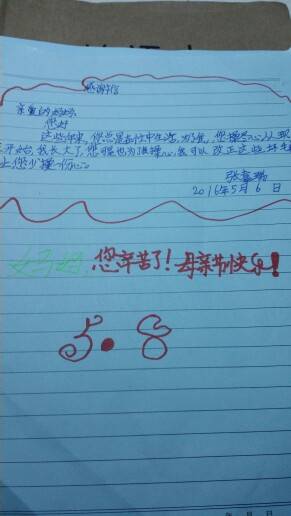 感谢信
亲爱的妈妈:
您好
这些年来,您总是在忙中生活,为了我,您操尽心,从现
在开始,我长大了,您不程也为了我操心,我可以改正这些坏毛
让您少操一份心。
张
2016年5月6日
好妈妈 您辛苦了!母亲节快乐!
5.8
年 月 日